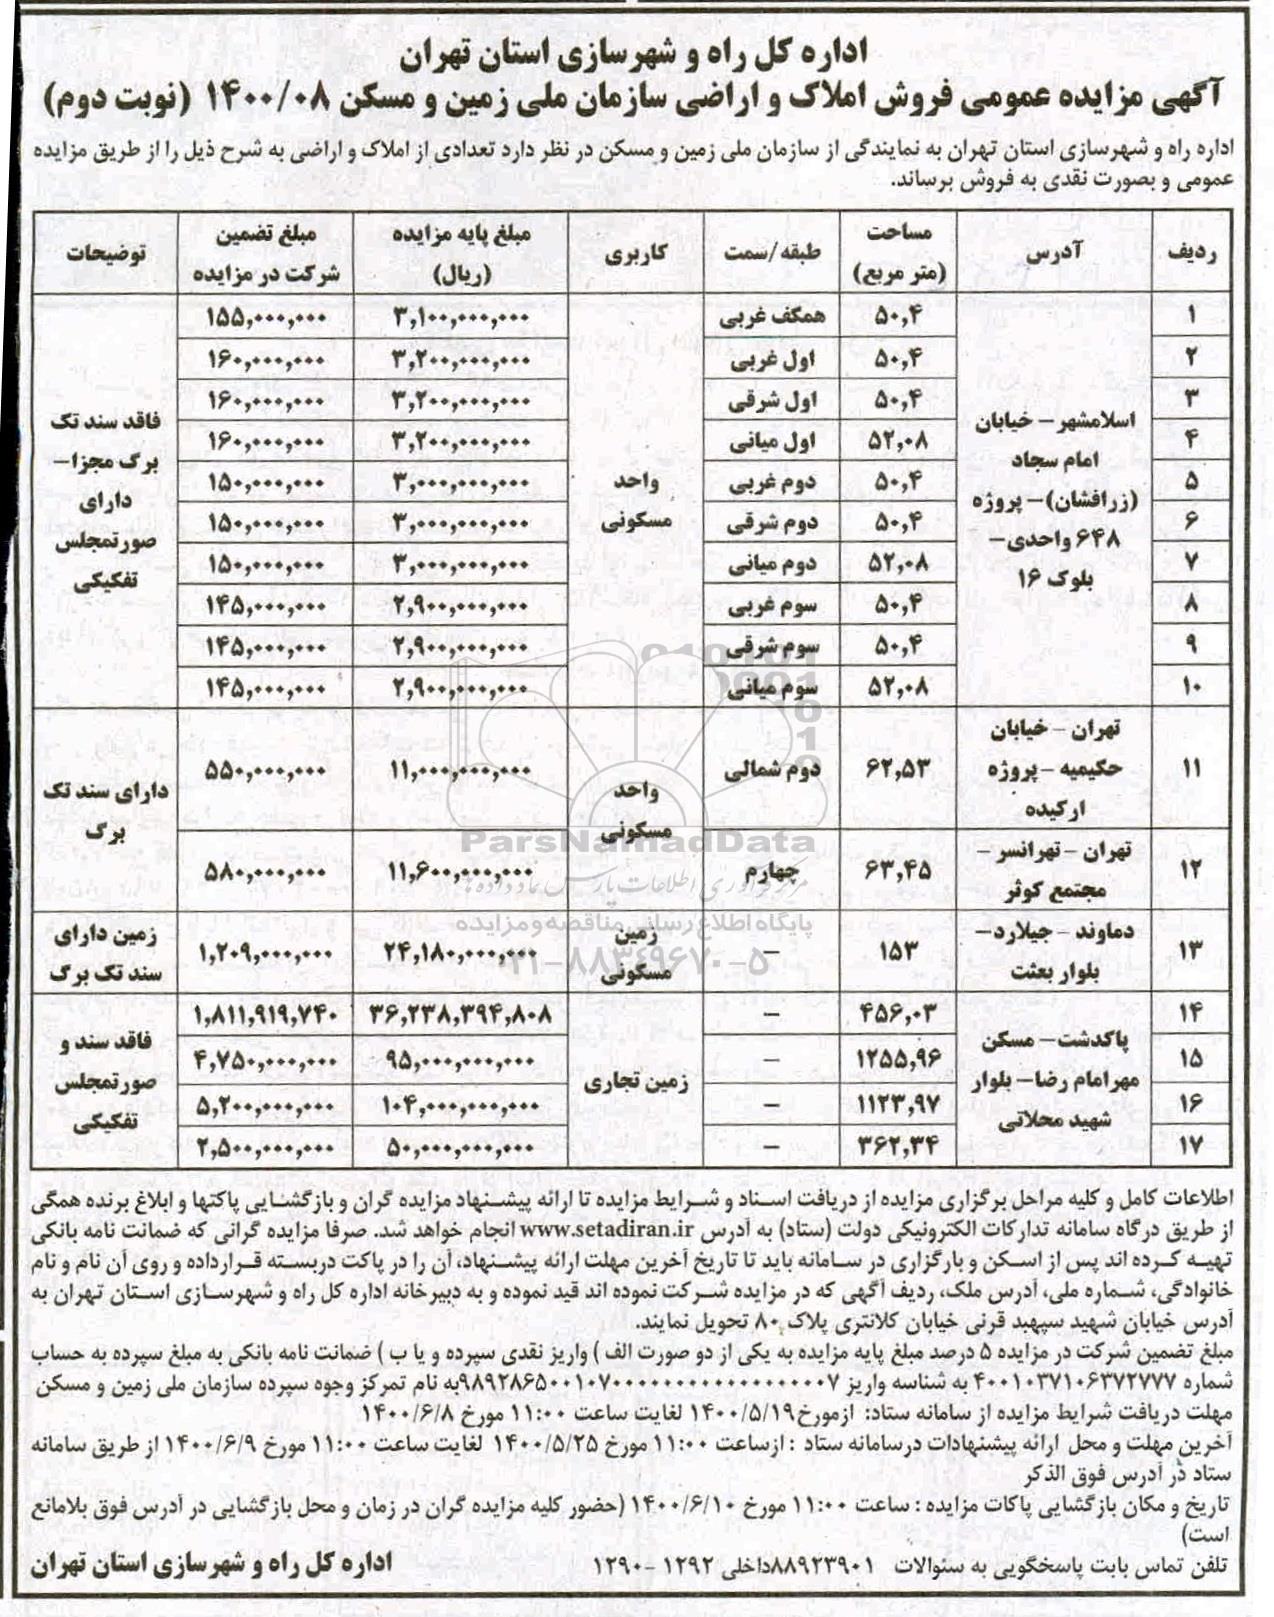 اداره کل راه و شهرسازی استان تهران
آگهی مزایده عمومی فروش املاک و اراضی سازمان ملی زمین و مسکن ۱۴۰۰/۰۸ (نوبت دوم)
اداره راه و شهرسازی استان تهران به نمایندگی از سازمان ملی زمین و مسکن در نظر دارد تعدادی از املاک و اراضی به شرح ذیل را از طریق مزایده
عمومی و بصورت نقدی به فروش برساند.
ردیف آدرس مساحت (متر مربع) طبقه/سمت کاربری مبلغ پایه مزایده (ریال) مبلغ تضمین شرکت در مزایده توضیحات
۱ ۵۰,۴ همکف غربی ۳,۱۰۰,۰۰۰,۰۰۰ ۱۵۵,۰۰۰,۰۰۰
۲ ۵۰,۴ اول غربی ۳,۲۰۰,۰۰۰,۰۰۰ ۱۶۰,۰۰۰,۰۰۰
۳ ۵۰,۴ اول شرقی ۳,۲۰۰,۰۰۰,۰۰۰ ۱۶۰,۰۰۰,۰۰۰
۴ ۵۲,۰۸ اول میانی ۳,۲۰۰,۰۰۰,۰۰۰ ۱۶۰,۰۰۰,۰۰۰
۵ ۵۰,۴ دوم غربی ۳,۰۰۰,۰۰۰,۰۰۰ ۱۵۰,۰۰۰,۰۰۰
۶ ۵۰,۴ دوم شرقی ۳,۰۰۰,۰۰۰,۰۰۰ ۱۵۰,۰۰۰,۰۰۰
۷ ۵۲,۰۸ دوم میانی ۳,۰۰۰,۰۰۰,۰۰۰ ۱۵۰,۰۰۰,۰۰۰
۸ ۵۰,۴ سوم غربی ۲,۹۰۰,۰۰۰,۰۰۰ ۱۴۵,۰۰۰,۰۰۰
۹ ۵۰,۴ سوم شرقی ۲,۹۰۰,۰۰۰,۰۰۰ ۱۴۵,۰۰۰,۰۰۰
۱۰ ۵۲,۰۸ سوم میانی ۲,۹۰۰,۰۰۰,۰۰۰ ۱۴۵,۰۰۰,۰۰۰
اسلامشهر – خیابان
امام سجاد
(زرافشان) – پروژه
۶۴۸ واحدی –
بلوک ۱۶
واحد
مسکونی
فاقد سند تک
برگ مجزا –
دارای
صورتمجلس
تفکیکی
۱۱ تهران – خیابان حکیمیه – پروژه ارکیده ۶۲,۵۳ دوم شمالی ۱۱,۰۰۰,۰۰۰,۰۰۰ ۵۵۰,۰۰۰,۰۰۰
۱۲ تهران – تهرانسر – مجتمع کوثر ۶۳,۴۵ چهارم ۱۱,۶۰۰,۰۰۰,۰۰۰ ۵۸۰,۰۰۰,۰۰۰
واحد
مسکونی
دارای سند تک
برگ
۱۳ دماوند – جیلارد – بلوار بعثت ۱۵۳ – زمین مسکونی ۲۴,۱۸۰,۰۰۰,۰۰۰ ۱,۲۰۹,۰۰۰,۰۰۰ زمین دارای سند تک برگ
۱۴ ۴۵۶,۰۳ – ۳۶,۲۳۸,۳۹۴,۸۰۸ ۱,۸۱۱,۹۱۹,۷۴۰
۱۵ ۱۲۵۵,۹۶ – ۹۵,۰۰۰,۰۰۰,۰۰۰ ۴,۷۵۰,۰۰۰,۰۰۰
۱۶ ۱۱۲۳,۹۷ – ۱۰۴,۰۰۰,۰۰۰,۰۰۰ ۵,۲۰۰,۰۰۰,۰۰۰
۱۷ ۳۶۲,۳۴ – ۵۰,۰۰۰,۰۰۰,۰۰۰ ۲,۵۰۰,۰۰۰,۰۰۰
پاکدشت – مسکن
مهر امام رضا – بلوار
شهید محلاتی
زمین تجاری
فاقد سند و
صورتمجلس
تفکیکی
ParsNamadData
مرکز فرآوری اطلاعات پارس نماد داده ها
پایگاه اطلاع رسانی مناقصه و مزایده
۰۲۱-۸۸۳۴۹۶۷۰-۵
اطلاعات کامل و کلیه مراحل برگزاری مزایده از دریافت اسناد و شرایط مزایده تا ارائه پیشنهاد مزایده گران و بازگشایی پاکتها و ابلاغ برنده همگی
از طریق درگاه سامانه تدارکات الکترونیکی دولت (ستاد) به آدرس www.setadiran.ir انجام خواهد شد. صرفا مزایده گرانی که ضمانت نامه بانکی
تهیه کرده اند پس از اسکن و بارگزاری در سامانه باید تا تاریخ آخرین مهلت ارائه پیشنهاد، آن را در پاکت دربسته قرارداده و روی آن نام و نام
خانوادگی، شماره ملی، آدرس ملک، ردیف آگهی که در مزایده شرکت نموده اند قید نموده و به دبیرخانه اداره کل راه و شهرسازی استان تهران به
آدرس خیابان شهید سپهبد قرنی خیابان کلانتری پلاک ۸۰ تحویل نمایند.
مبلغ تضمین شرکت در مزایده ۵ درصد مبلغ پایه مزایده به یکی از دو صورت الف ) واریز نقدی سپرده و یا ب ) ضمانت نامه بانکی به مبلغ سپرده به حساب
شماره ۴۰۰۱۰۳۷۱۰۶۳۷۲۷۷۷ به شناسه واریز به نام تمرکز وجوه سپرده سازمان ملی زمین و مسکن
مهلت دریافت شرایط مزایده از سامانه ستاد: ازمورخ ۱۴۰۰/۵/۱۹ لغایت ساعت ۱۱:۰۰ مورخ ۱۴۰۰/۶/۸
آخرین مهلت و محل ارائه پیشنهادات درسامانه ستاد : ازساعت ۱۱:۰۰ مورخ ۱۴۰۰/۵/۲۵ لغایت ساعت ۱۱:۰۰ مورخ ۱۴۰۰/۶/۹ از طریق سامانه
ستاد در آدرس فوق الذکر
تاریخ و مکان بازگشایی پاکات مزایده : ساعت ۱۱:۰۰ مورخ ۱۴۰۰/۶/۱۰ (حضور کلیه مزایده گران در زمان و محل بازگشایی در آدرس فوق بلامانع
است)
تلفن تماس بابت پاسخگویی به سئوالات ۸۸۹۲۳۹۰۱ داخلی ۱۲۹۲ – ۱۲۹۰
اداره کل راه و شهرسازی استان تهران